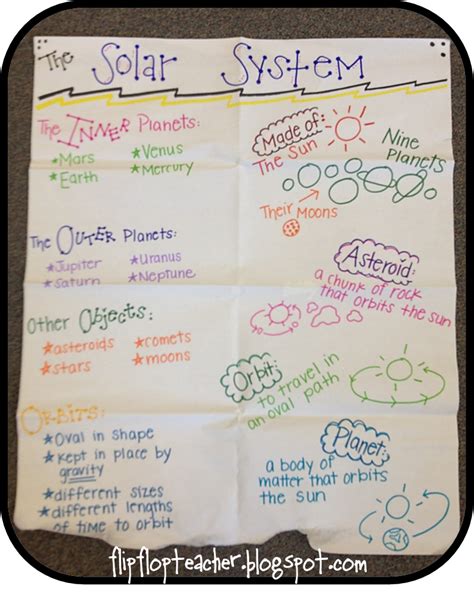 The Solar System
The INNER Planets:
★Mars ★Venus
★Earth ★Mercury
The OUTER Planets:
★Jupiter ★Uranus
★Saturn ★Neptune
Other Objects:
★asteroids ★comets
★stars ★moons
ORBITS:
★Oval in shape
★Kept in place by
gravity
★different sizes
★different lengths
of time to orbit
Made of:
The Sun
Nine
Planets
Their Moons
Asteroid:
a chunk of rock
that orbits the sun
Orbit:
to travel in
an oval path
Planet:
a body of
matter that orbits
the sun
flipflopteacher.blogspot.com